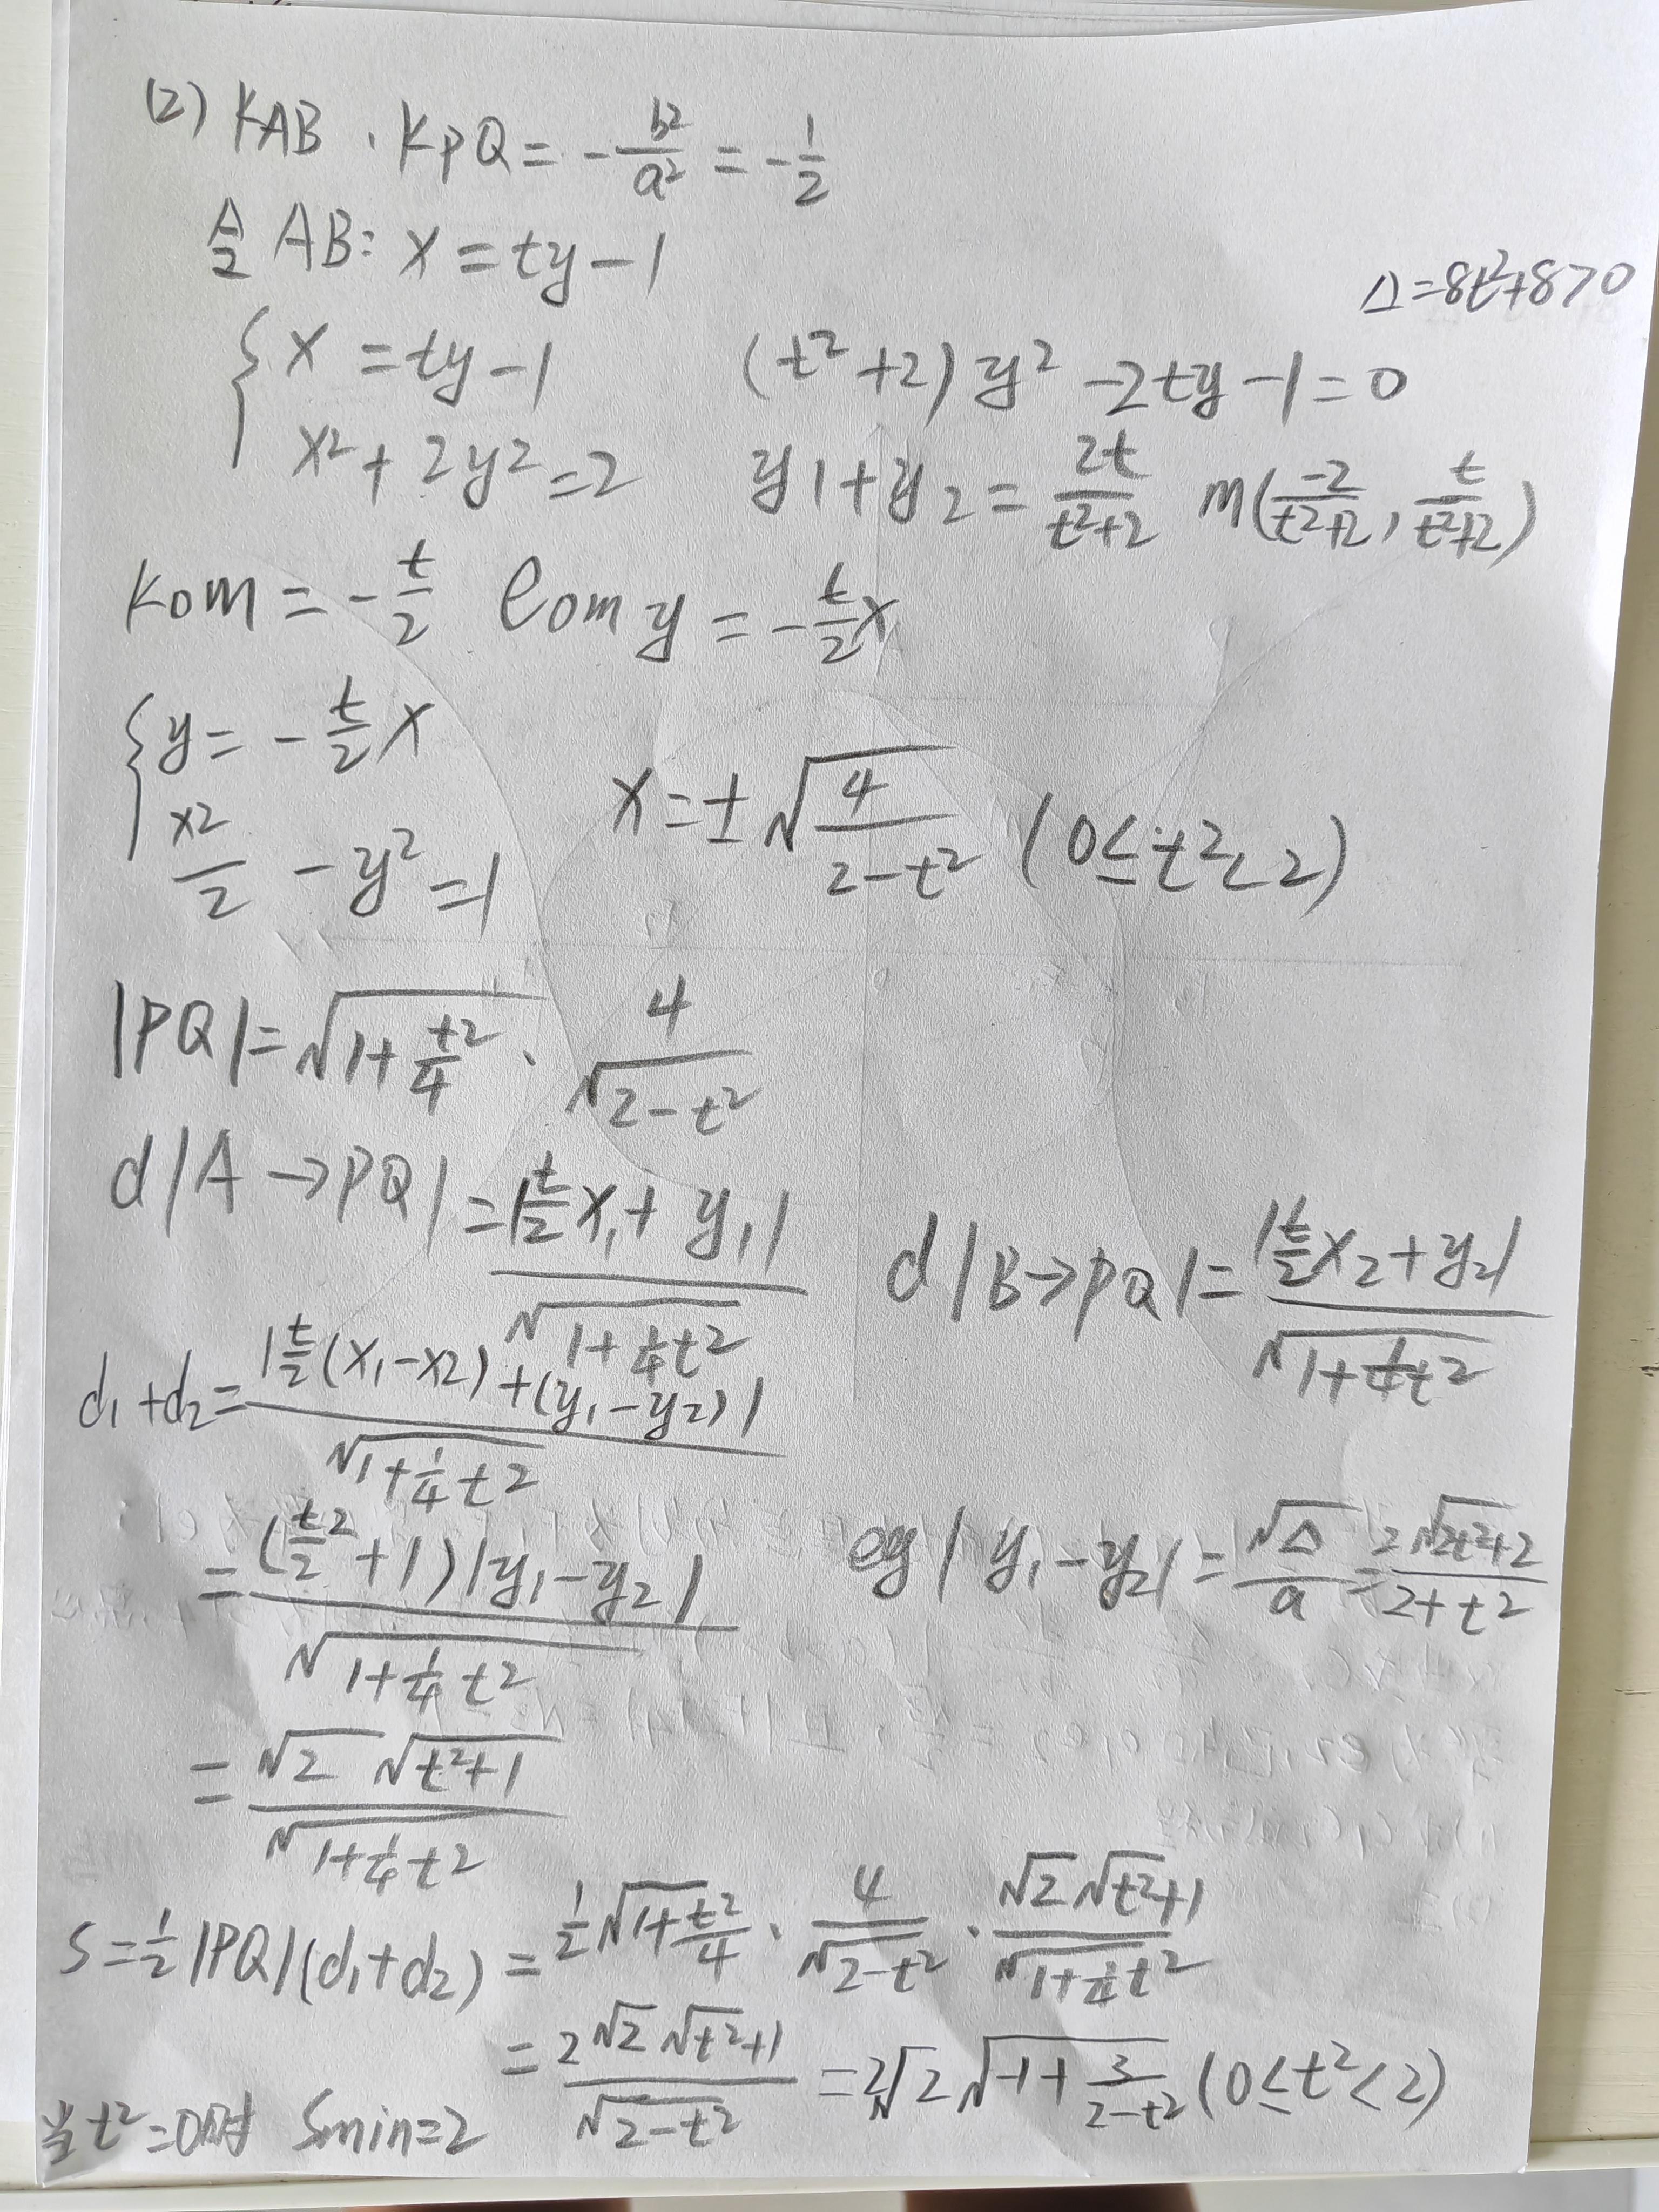 (2) KAB · KPQ = -b²/a² = -1/2
令 AB: x = ty - 1
Δ = 8t²+8 > 0
{ x = ty - 1    (t²+2)y² - 2ty - 1 = 0
x² + 2y² = 2    y1 + y2 = 2t/(t²+2)    m(-2/(t²+2), t/(t²+2))
kom = -t/2    lom y = -t/2 x
{ y = -t/2 x
x²/2 - y² = 1    x = ±√(4/(2-t²)) (0 ≤ t² < 2)
|PQ| = √(1+t²/4) · 4/√(2-t²)
d|A→PQ| = |t/2 x₁ + y₁|/√(1+1/4 t²)    d|B→PQ| = |t/2 x₂ + y₂|/√(1+1/4 t²)
d₁+d₂ = |t/2(x₁-x₂) + (y₁-y₂)|/√(1+1/4 t²)
= (t²/2+1)|y₁-y₂|/√(1+1/4 t²)    |y₁-y₂| = √Δ/a = 2√(2t²+2)/(2+t²)
= √2 √(t²+1)/√(1+1/4 t²)
S = 1/2|PQ|(d₁+d₂) = 1/2 √(1+t²/4) · 4/√(2-t²) · √2 √(t²+1)/√(1+1/4 t²)
= 2√2 √(t²+1)/√(2-t²) = 2√2 √(-1+3/(2-t²)) (0 ≤ t² < 2)
当 t²=0时 Smin=2